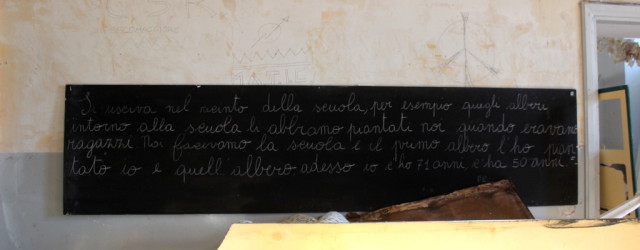 Si usciva nel recinto della scuola, per esempio quegli alberi
intorno alla scuola li abbiamo piantati noi quando eravamo
ragazzi. Noi facevamo la scuola e il primo albero l'ho pian-
tato io e quell'albero adesso io c'ho 71 anni, c'ha 50 anni."